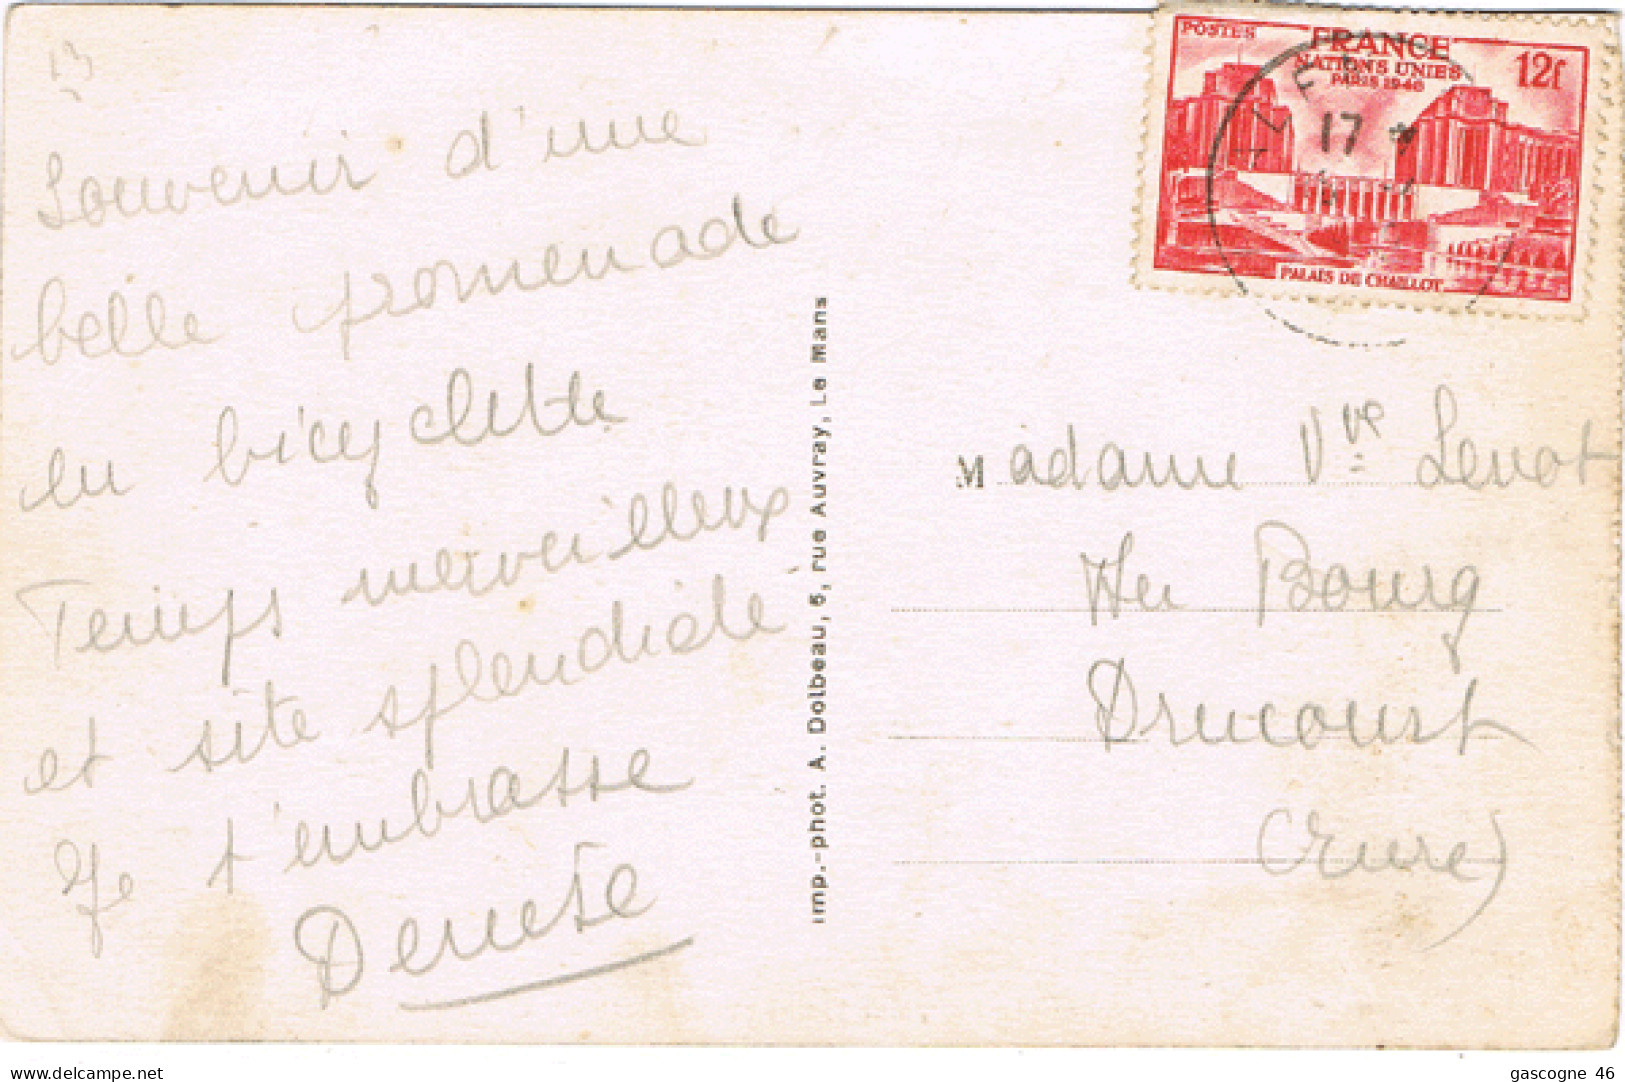 13
Souvenir d'une
belle promenade
en bicyclette
Temps merveilleux
et site splendide
Je t'embrasse
Denise
Imp.-phot. A. Dolbeau, 5, rue Auvray, Le Mans
POSTES
FRANCE
12f
NATIONS UNIES
PARIS 1948
PALAIS DE CHAILLOT
17 *
Madame Vve Lenot
Au Bourg
Drucourt
(Eure)
gascogne 46